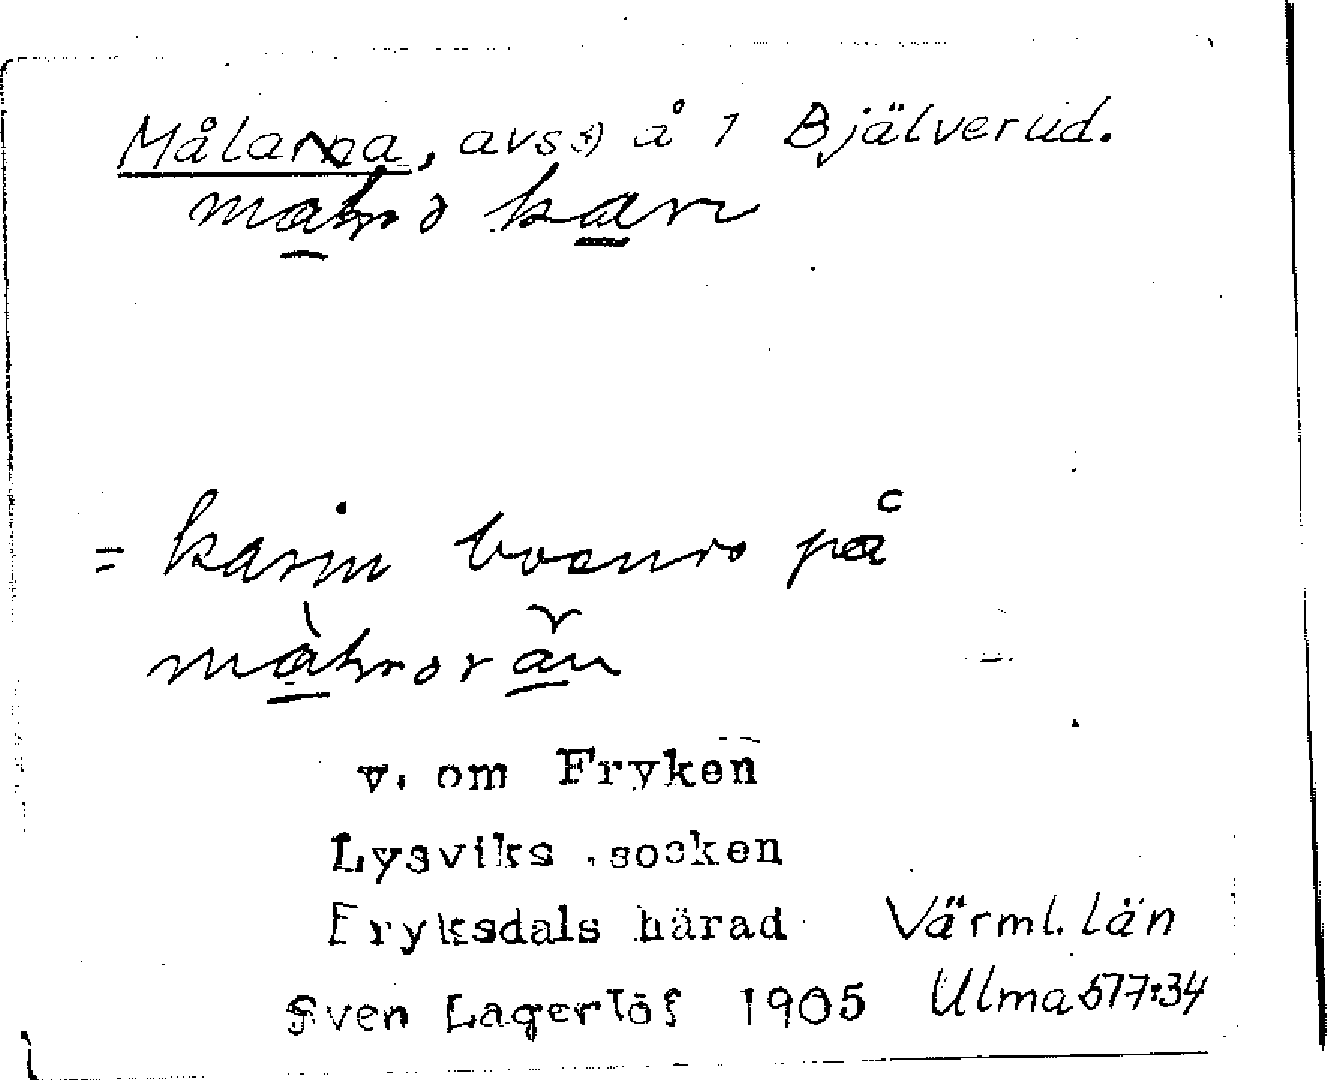 Målarna, avsg å 1 Bjälverud.
kari
= karin boende på
v. om Fryken
Lysviks socken
Fryksdals härad Värml. län
Sven Lagerlöf 1905 Ulma 577:34